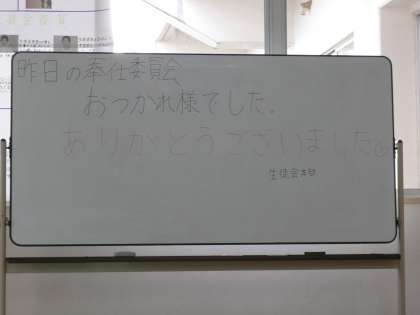 昨日の奉仕委員会
おつかれ様でした。
ありがとうございました。
生徒会本部